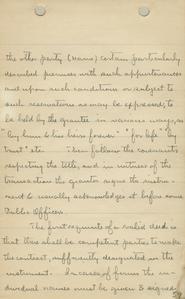 the other party (Name) certain particularly
described premises with such appurtenances
and upon such condition or subject to
such reservations as may be expressed, to
be held by the grantee in various ways, as
"by him & his heirs forever" "for life" "by
trust" etc. Then follow the covenants
respecting the title, and in witness of the
transaction the grantor signs the instru-
ment & usually acknowledges it before some
Public Officer.
The first requisite of a valid deed is
that there shall be competent parties to make
the contract, sufficiently designated in the
instrument. In cases of firms the in-
dividual names must be given & signed